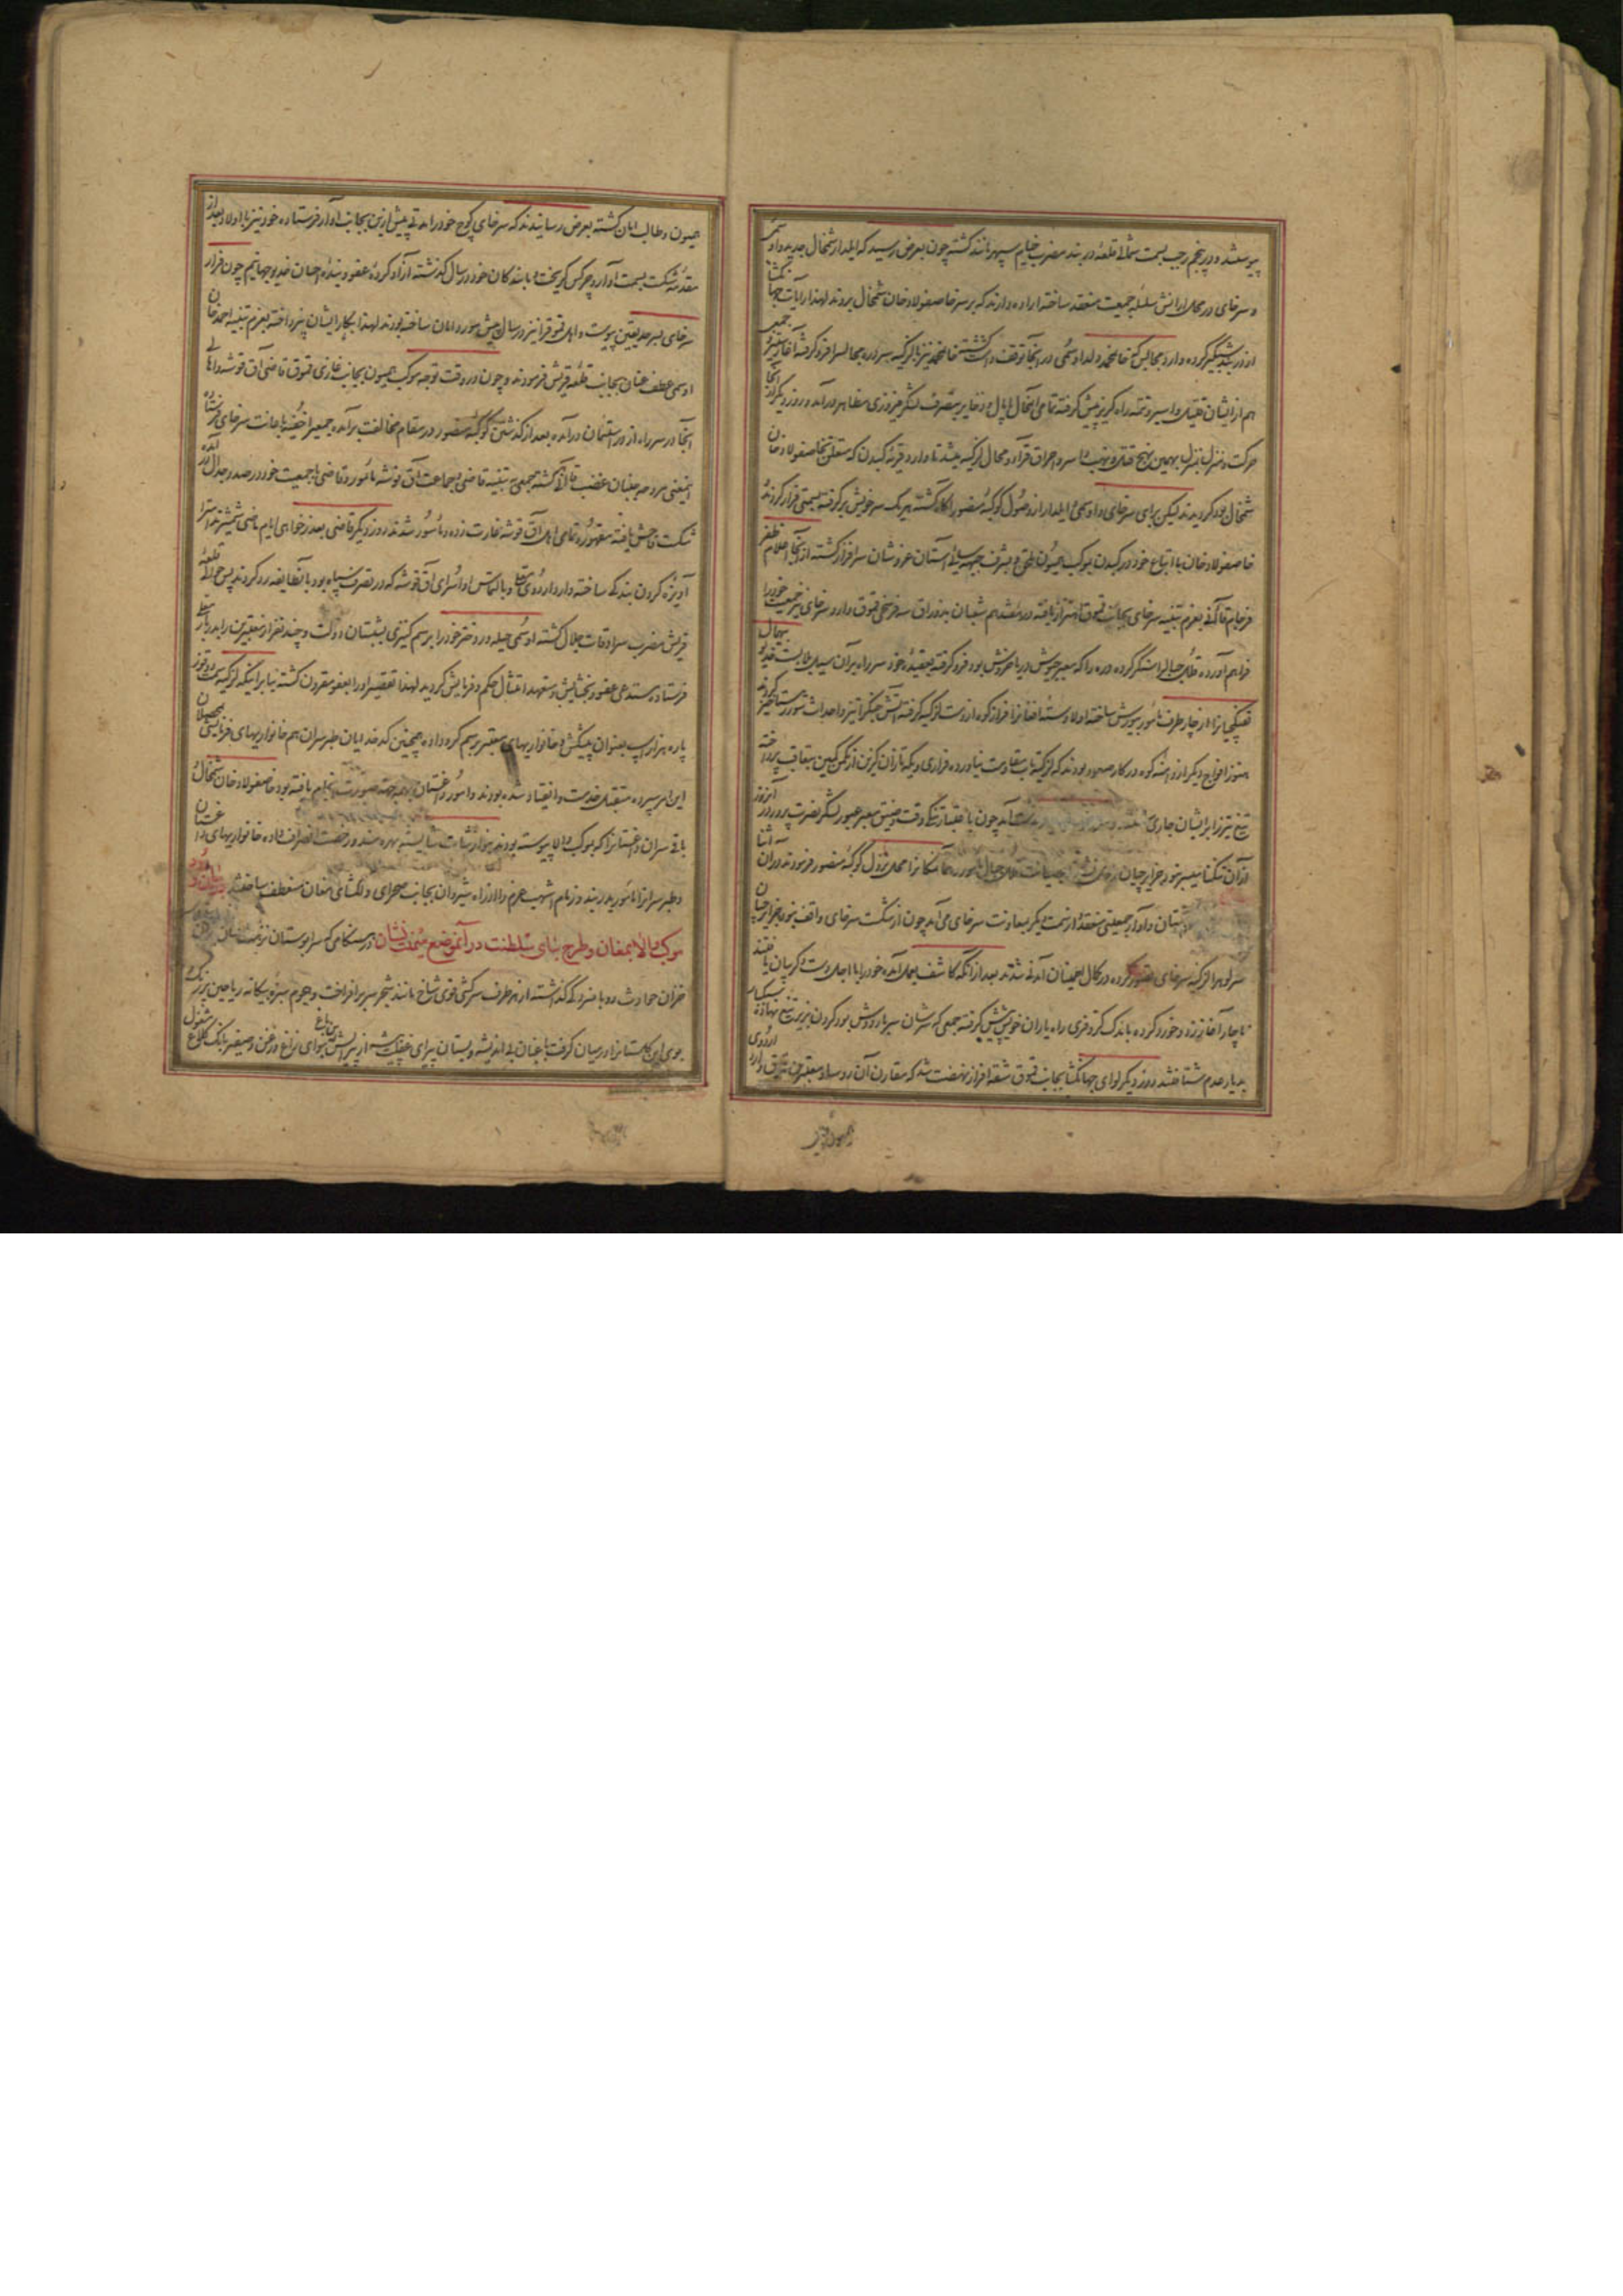 پیوستند و در پنجم رجب بسمت شمالی قلعه دربند مضرب خیام سپهر مانند گشته چون بعرض رسید که ایلدار شمخال جدید و اوسمی
و سرخای در محال سلسله جمعیت منعقد ساخته اراده دارند که بر سر خاصفولادخان شمخال بروند لهذا رایات جهانگشا
از دربند شبگیر کرده وارد مجالیس که خانمحمد ولد اوسمی در آنجا توقف داشت گشته خانمحمد نیز با لزگیه سر دره مجالس را فرو گرفته آغاز ستیز
هم از ایشان قتیل و اسیر و تتمه راه گریز پیش گرفته تمامی آنمحال پامال و ذخایر بتصرف لشکر فیروزی مظاهر درآمد و روز دیگر از آنجا
حرکت و منزل بمنزل بهمین نهج قتل و نهب و اسر و احراق قرا و محال لزگیه میشد تا وارد قریه کبدن که متعلق بخاصفولادخان
شمخال بود گردیدند لیکن برای سرخای و اوسمی و ایلدار از وصول کوکبه منصور آگاه گشته هر یک سر خویش بر گرفته بسمتی فرار کردند
خاصفولادخان با اتباع خود در کبدن بموکب همیون ملحق و بشرف جبهه سائی آستان عز و شان سرافراز گشته از آنجا اعلام ظفر
فرجام قاآنی بعزم تنبیه سرخای بجانب قموق اهتزاز یافته در هشتم شعبان بدوراق سه فرسخی قموق وارد و سرخای نیز جمعیت خود را
فراهم آورده قلل جبال را سنگر کرده دره را که معبر جیوش دریا خروش بود فرو گرفته بعقیده خود سر راه بر آن سیل
تفنگچیان را از چهار طرف مأمور بیورش ساخته اولا دسته افغان را فراز کوه از دست لزگیه گرفته آتش جنگ را تیز و احداث شور رستاخیز کردند
هنوز افواج دیگر از دامنه کوه در کار صعود بودند که لزگیه تاب مقاومت نیاورده فراری و یکه تازان گزین از مکمن کمین بتعاقب پرداخته
تیغ تیز را بر ایشان جاری آمد چون باعتبار تنگی وقت و ضیق معبر عبور لشکر نصرت پرور در آنروز
از آن تنگنا میسر نبود جزایرچیان را همان مکان را محل نزول کوکبه منصور فرمودند در آن اثنا
داغستان و آوار جمعیتی منعقد از سمت دیگر بمعاونت سرخای می آمد چون از شکست سرخای واقف نبود جزایرچیان
سر کوه را لزگیه سرخای تصور کرده در کمال اطمینان آمدنی شدند بعد از آنکه کاشف بعمل آمده خود را با اجل دست و گریبان یافتند
ناچار آغاز زد و خورد کرده باندک کر و فری راه یاران خویش پیش گرفته جمعی که سرشان سربار دوش بود گردن بزیر تیغ نهاده سبکبار
بدیار عدم شتافتند روز دیگر لوای جهانگشا بجانب قموق شقه افراز نهضت شد که مقارن آن رؤسا و معتبرین قموق وارد اردوی
همیون و طالب امان گشته بعرض رسانیدند که سرخای کوچ خود را مدتی پیش از این بجانب آوار فرستاده خود نیز با اولاد بعد از
مقدمه شکست بسمت آوار و چرکس گریخت ما بندگان خود در سال گذشته آزاد کرده عفو و بنده احسان خدیو جهانیم چون فرار
سرخای بسرحد یقین پیوست و اهل قموق را نیز در سال پیش مورد امان ساخته بودند لهذا بکار ایشان نپرداخته بعزم تنبیه احمدخان
اوسمی عطف عنان بجانب قلعه قریش فرمودند و چون در وقت توجه موکب همیون بجانب غازی قموق قاضی آق قوشه و اهالی
آنجا در سر راه از در استیمان درآمده بعد از گذشتن کوکبه منصور در مقام مخالفت برآمده جمعی را خفیة باعانت سرخای فرستاده
اینمعنی مروحه جنبان غضب قاآنی گشته جمعی به تنبیه قاضی و جماعت آق قوشه مأمور و قاضی با جمعیت خود در صدد جدال درآمده
شکست فاحش یافته مقهور و تمامی اهل آق قوشه غارت زده و مأسور شدند روز دیگر قاضی بعذرخواهی ایام ماضی شمشیر ندامت را
آویزه گردن بندگی ساخته وارد اردوی معلی و بالتماس او اسرای آق قوشه که در تصرف سپاه بود بآنطایفه رد کردند پس حوالی قلعه
قریش مضرب سرادقات جلال گشته اوسمی حیله ور دختر خود را برسم کنیزی بشبستان دولت و چند نفر از معتبرین را بدربار
فرستاده مستدعی عفو و بخشایش و متعهد امتثال حکم و فرمایش گردید لهذا تقصیر او را بعفو مقرون گشته بنا بر اینکه لزگیه
پاره هزار اسب بعنوان پیشکش و خانواریهای معتبر برسم گرو داده همچنین کدخدایان طبرسران هم خانواریهای فرمایشی
این امر سپرده متقبل خدمت و انقیاد شده بودند و امور داغستان بهمه جهت صورت انجام یافته بود خاصفولادخان شمخال
باقی سران داغستان را که بموکب والا پیوسته بودند بنوازشات شایسته بهره مند و رخصت انصراف داده خانواریهای داغستان
و طبرسران را مأمور بدربند و زمام اشهب عزم والا از راه شیروان بجانب صحرای دلگشای مغان منعطف ساختند
موکب والا بمغان و طرح بنای سلطنت در آنموضع میمنت نشان در هنگامی که سرابوستان
خزان حوادث رو بافسردگی گذاشته از هر طرف سرکشی قوی شاخ مانند شجر سر برافراخت و هجوم سبزه بیگانه ریاحین
جوی این گلستان را در میان گرفت باغبان بی اندیشه و بستان پیرای غفلت پیشه از پیرایش باغ بنوای زاغ و زغن و صفیر بانگ کلاغ مشغول